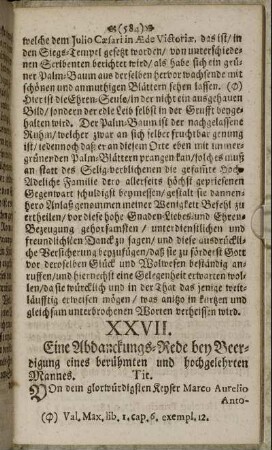 (584)
welche dem Julio Cæsari in Æde Victoriæ, das ist/ in
den Siegs-Tempel gesetzt worden/ von unterschiede-
nen Scribenten berichtet wird/ als habe sich ein grü-
ner Palm-Baum aus derselben hervor wachsende mit
schönen und anmuthigen Blättern sehen lassen. (Φ)
Hier ist die Ehren-Seule/ in der nicht ein ausgehauen
Bild/ sondern der edle Leib selbst in der Grufft beyge-
halten wird. Der Palm-Baum ist der nachgelassene
Ruhm/ welcher zwar an sich selber fruchtbar genung
ist/ iedennoch daß er an diesem Orte eben mit immer-
grünenden Palm-Blättern prangen kan/ so
an statt des Selig-verblichenen die gesamte Hoch-
Adeliche Familie dero allerseits höchst gepriesenen
Gegenwart schuldigst beymessen/ gestalt sie dannen-
hero Anlaß genommen meiner Wenigkeit Befehl zu
ertheilen/ vor diese hohe Gnaden Liebes und Ehren-
Bezeugung gehorsamsten/ unterdienstlichen und
freundlichsten Danck zu sagen/ und diese ausdrückli-
che Versicherung beyzufügen/ daß sie zu förderst Gott
vor derselben Glück und Wolwesen beständig an-
ruffen/ und hiernechst eine Gelegenheit erwarten wol-
len/ da sie würcklich und in der That das jenige weit-
läufftig erweisen mögen/ was anitzo in kurtzen und
gleichsam unterbrochenen Worten verheissen wird.
XXVII.
Eine Abdanckungs-Rede bey Beer-
digung eines berühmten und hochgelehrten
Mannes. Tit.
VOn dem glorwürdigsten Keyser Marco Aurelio
Anto-
(Φ) Val. Max. lib. 1. cap. 6. exempl. 12.